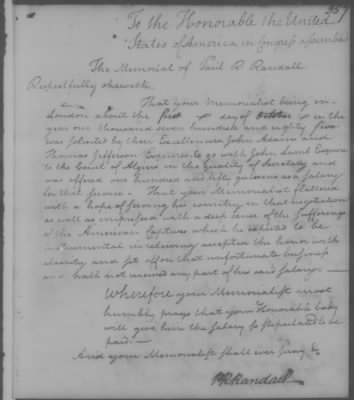 357
To the Honorable the United
States of America in Congress assembled
The Memorial of Paul R Randall
Respectfully sheweth.
That your Memorialist being in
London about the first day of October in the
year one thousand seven hundred and eighty five
was solicited by their Excellencies John Adams and
Thomas Jefferson Esquires to go with John Lamb Esquire
to the Court of Algiers in the quality of Secretary and
was offered one hundred and fifty guineas as a Salary
for that service. — That your Memorialist flattered
with a hope of serving his country in that negotiation
as well as impressed with a deep sense of the sufferings
of the American Captives which he wished to be
instrumental in relieving accepted the honor with
alacrity and set off on that unfortunate business
and hath not received any part of his said Salary. —
Wherefore your Memorialist most
humbly prays that your Honorable body
will give him the Salary so stipulated to be
paid. —
And your Memorialist shall ever pray &c
PRRandall